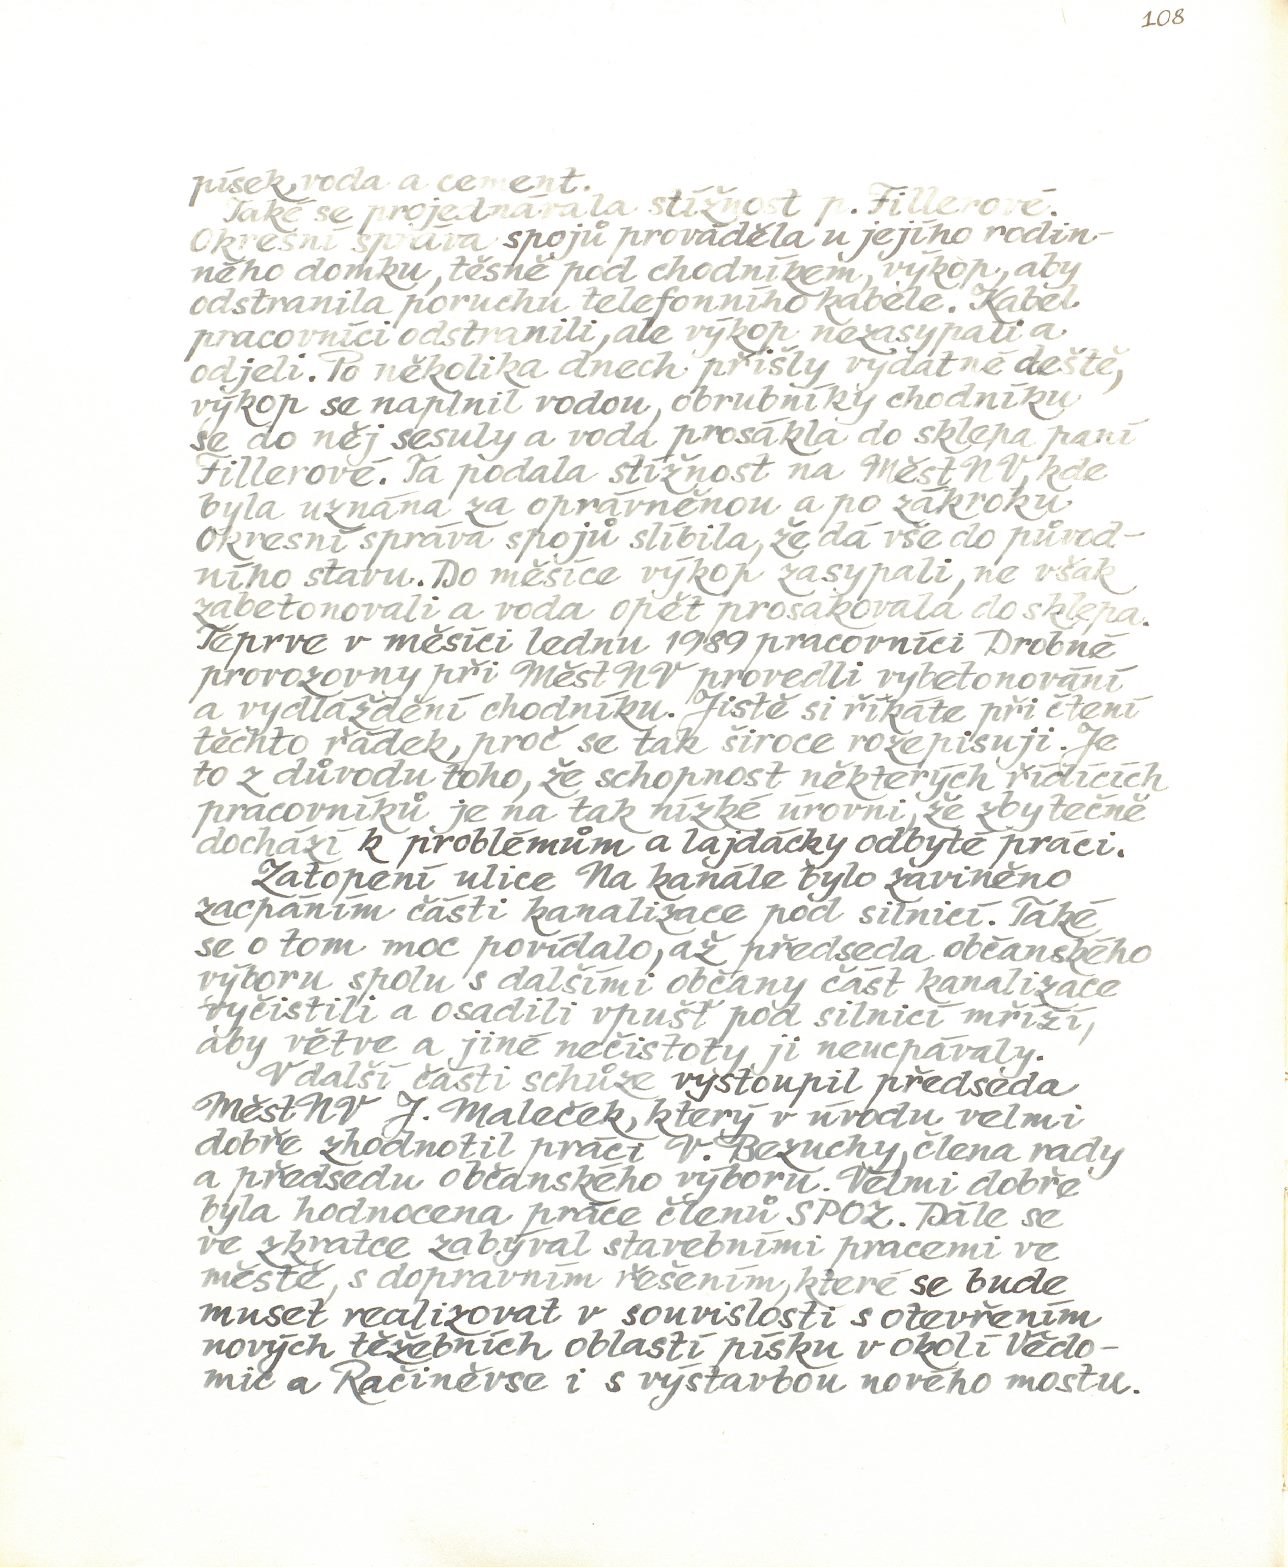 108
písek, voda a cement.
Také se projednávala stížnost p. Fillerové.
Okresní správa spojů prováděla u jejího rodin-
ného domku, těsně pod chodníkem, výkop, aby
odstranila poruchu telefonního kabele. Kabel
pracovníci odstranili, ale výkop nezasypali a
odjeli. Po několika dnech přišly vydatné deště,
výkop se naplnil vodou, obrubníky chodníku
se do něj sesuly a voda prosákla do sklepa paní
Fillerové. Ta podala stížnost na MěstNV, kde
byla uznána za oprávněnou a po zákroku
Okresní správa spojů slíbila, že dá vše do původ-
ního stavu. Do měsíce výkop zasypali, ne však
zabetonovali a voda opět prosakovala do sklepa.
Teprve v měsíci lednu 1989 pracovníci Drobné
provozovny při MěstNV provedli vybetonování
a vydláždění chodníku. Jistě si říkáte při čtení
těchto řádek, proč se tak široce rozepisuji. Je
to z důvodu toho, že schopnost některých řídících
pracovníků je na tak nízké úrovni, že zbytečně
dochází k problémům a lajdácky odbyté práci.
Zatopení ulice Na kanále bylo zaviněno
zacpáním části kanalizace pod silnicí. Také
se o tom moc povídalo, až předseda občanského
výboru spolu s dalšími občany část kanalizace
vyčistili a osadili vpusť pod silnicí mříží,
aby větve a jiné nečistoty ji neucpávaly.
V další části schůze vystoupil předseda
MěstNV J. Maleček, který v úvodu velmi
dobře zhodnotil práci V. Bezuchy, člena rady
a předsedu občanského výboru. Velmi dobře
byla hodnocena práce členů SPOZ. Dále se
ve zkratce zabýval stavebními pracemi ve
městě, s dopravním řešením, které se bude
muset realizovat v souvislosti s otevřením
nových těžebních oblastí písku v okolí Vědo-
mic a Račiněvse i s výstavbou nového mostu.